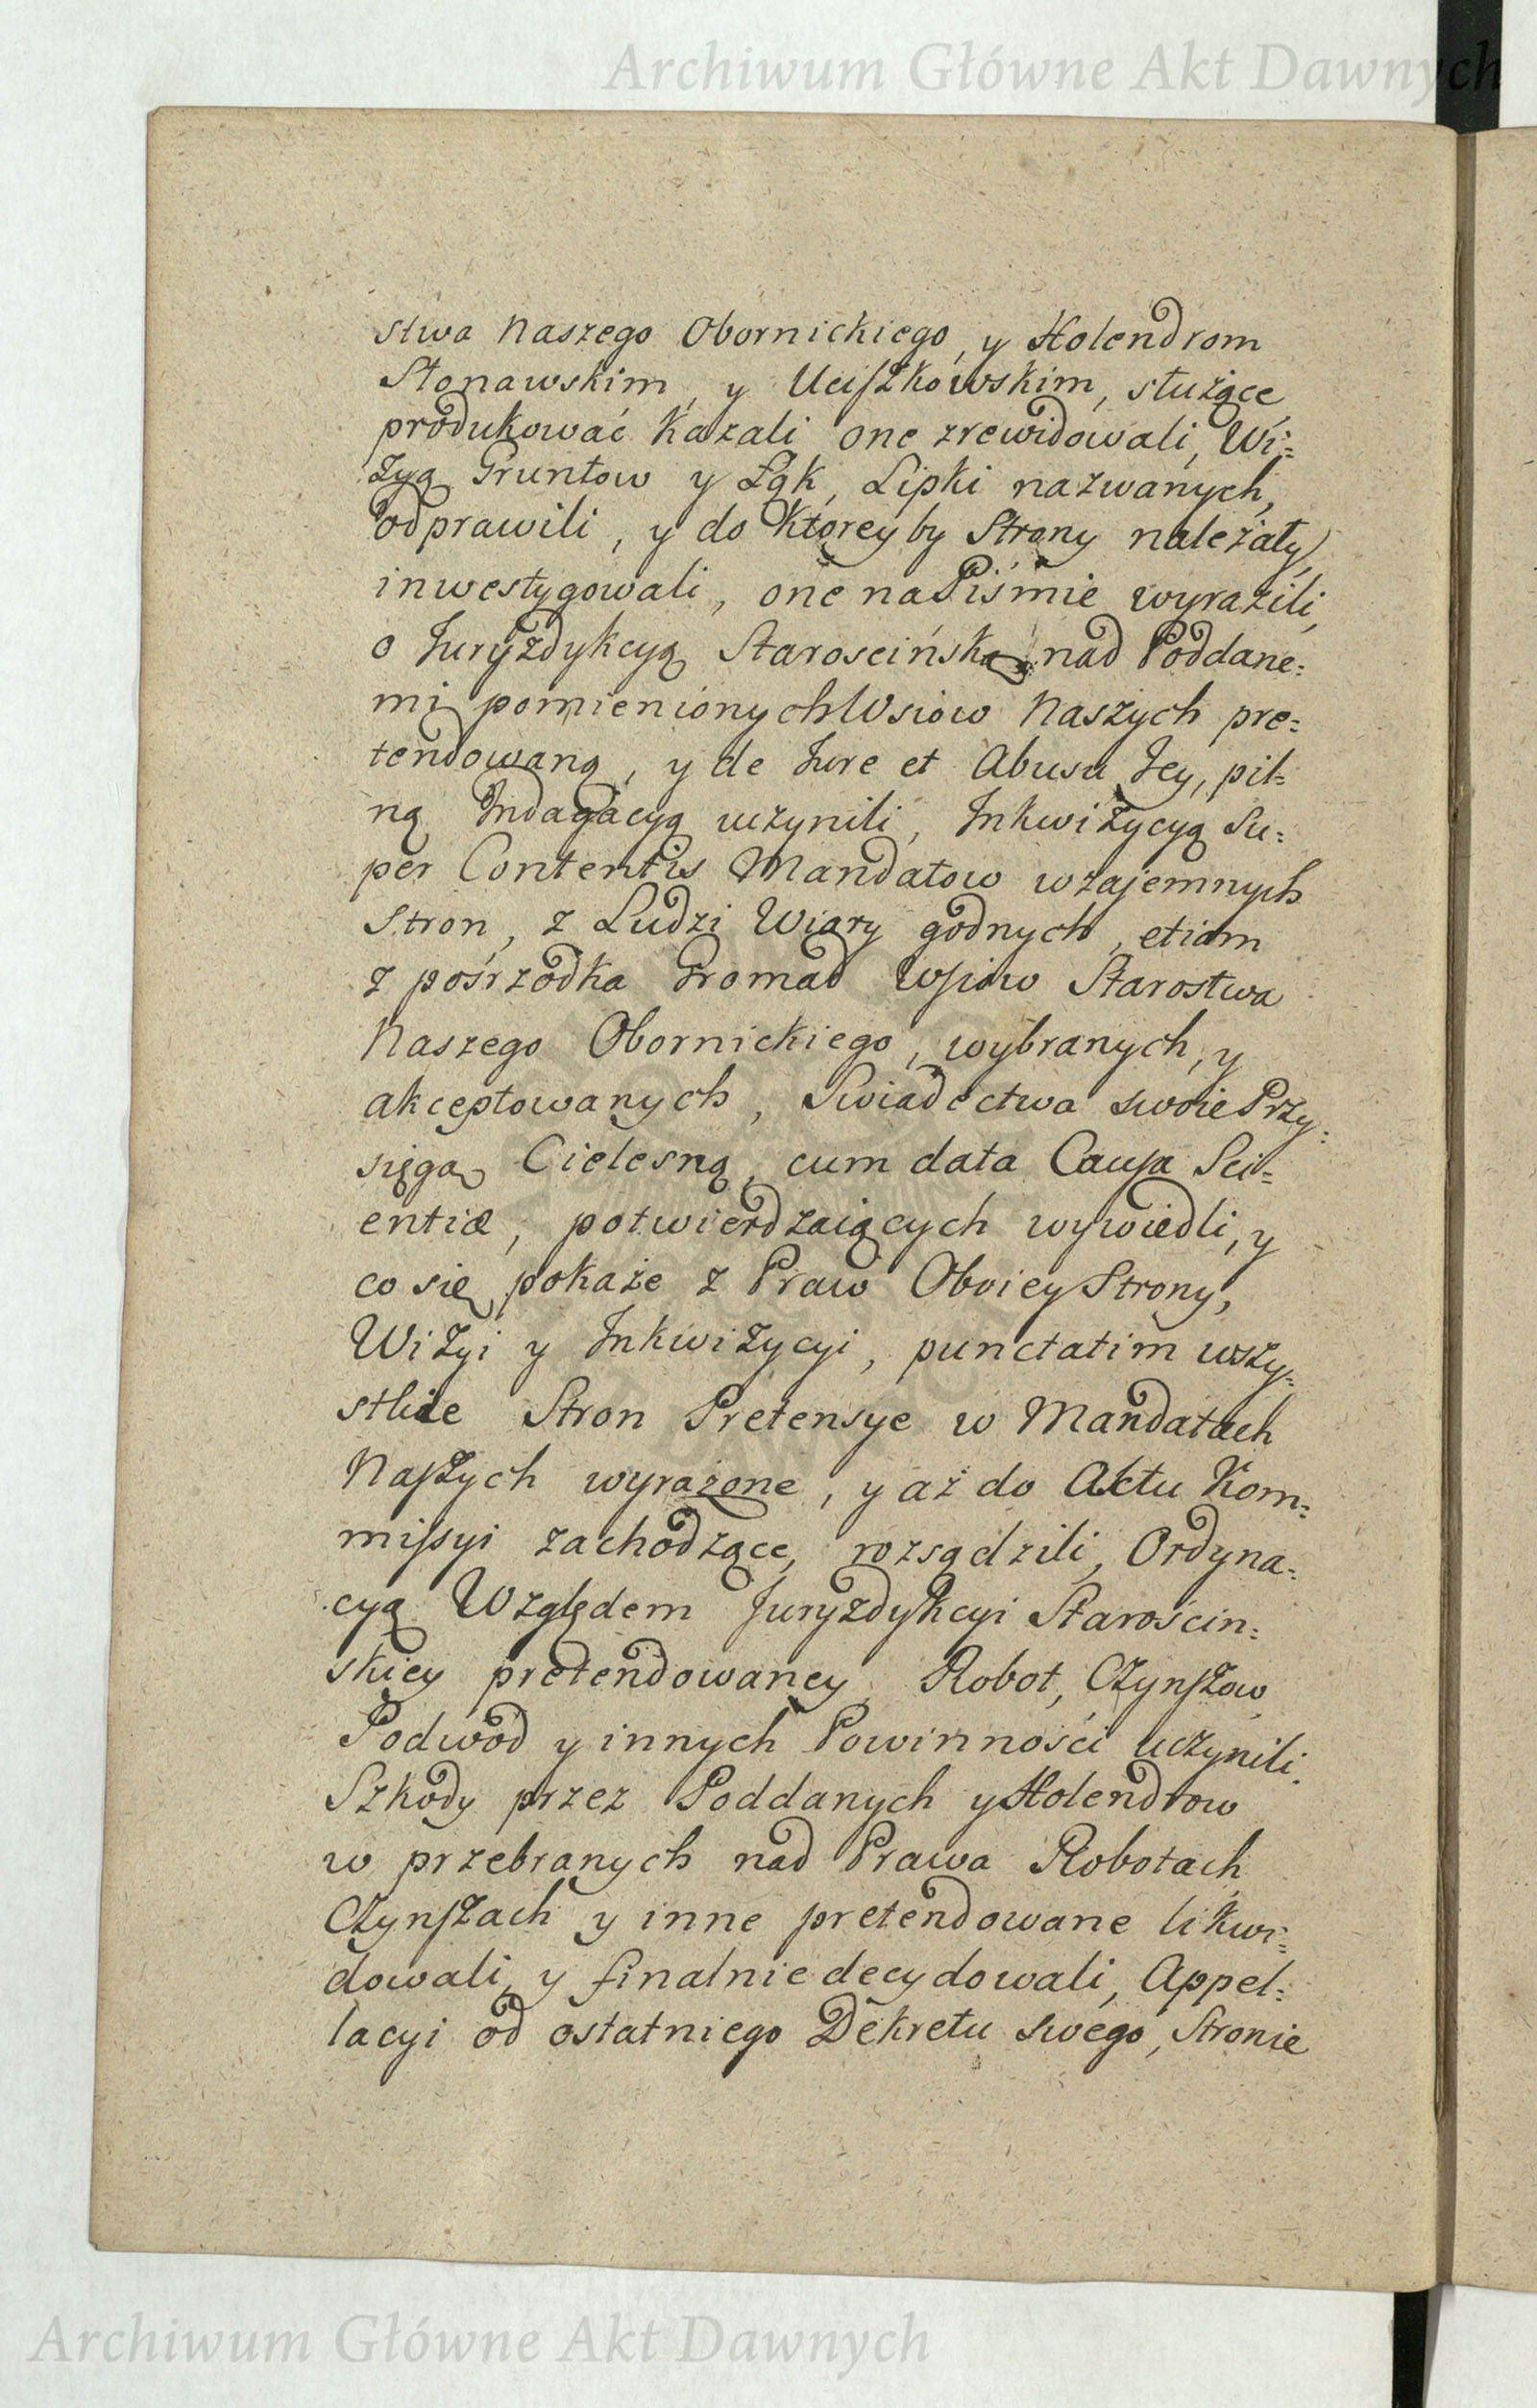 Archiwum Główne Akt Dawnych
stwa Naszego Obornickiego, y Holendrom
Stonawskim, y Uciſzkowskim, służące
produkować kazali one zrewidowali, Wi:
zyą Gruntow y Łąk, Lipki nazwanych,
odprawili, y do ktorey by Strony należały,
inwestygowali, one na Piśmie wyrazili,
o Juryzdykcyą Starościńską nad Poddane:
mi pomienionych Wsiow Naszych pre:
tendowaną, y de Jure et Abusu Jey, pil:
ną Indagacyą uczynili, Inkwizycyą Su:
per Contentis Mandatow wzajemnych
Stron, z Ludzi Wiary godnych, etiam
z pośrzodka Gromad Wſiow Starostwa
Naszego Obornickiego, wybranych, y
akceptowanych, Swiadectwa swoie Przy:
sięgą Cielesną, cum data Cauſa Sci:
entiæ, potwierdzaiących wywiedli, y
co się pokaże z Praw Oboiey Strony,
Wizyi y Inkwizycyi, punctatim wszy:
stkie Stron Pretensye w Mandatach
Naſzych wyrażone, y aż do Aktu Kom:
miſsyi zachodzące, rozsądzili, Ordyna:
cyą Względem Juryzdykcyi Starościn:
skiey pretendowaney, Robot, Czynſzow
Podwod y innych Powinności uczynili.
Szkody przez Poddanych y Holendrow
w przebranych nad Prawa Robotach
Czynſzach y inne pretendowane likwi:
dowali, y finalnie decydowali, Appel:
lacyi od ostatniego Dekretu swego, Stronie
Archiwum Główne Akt Dawnych